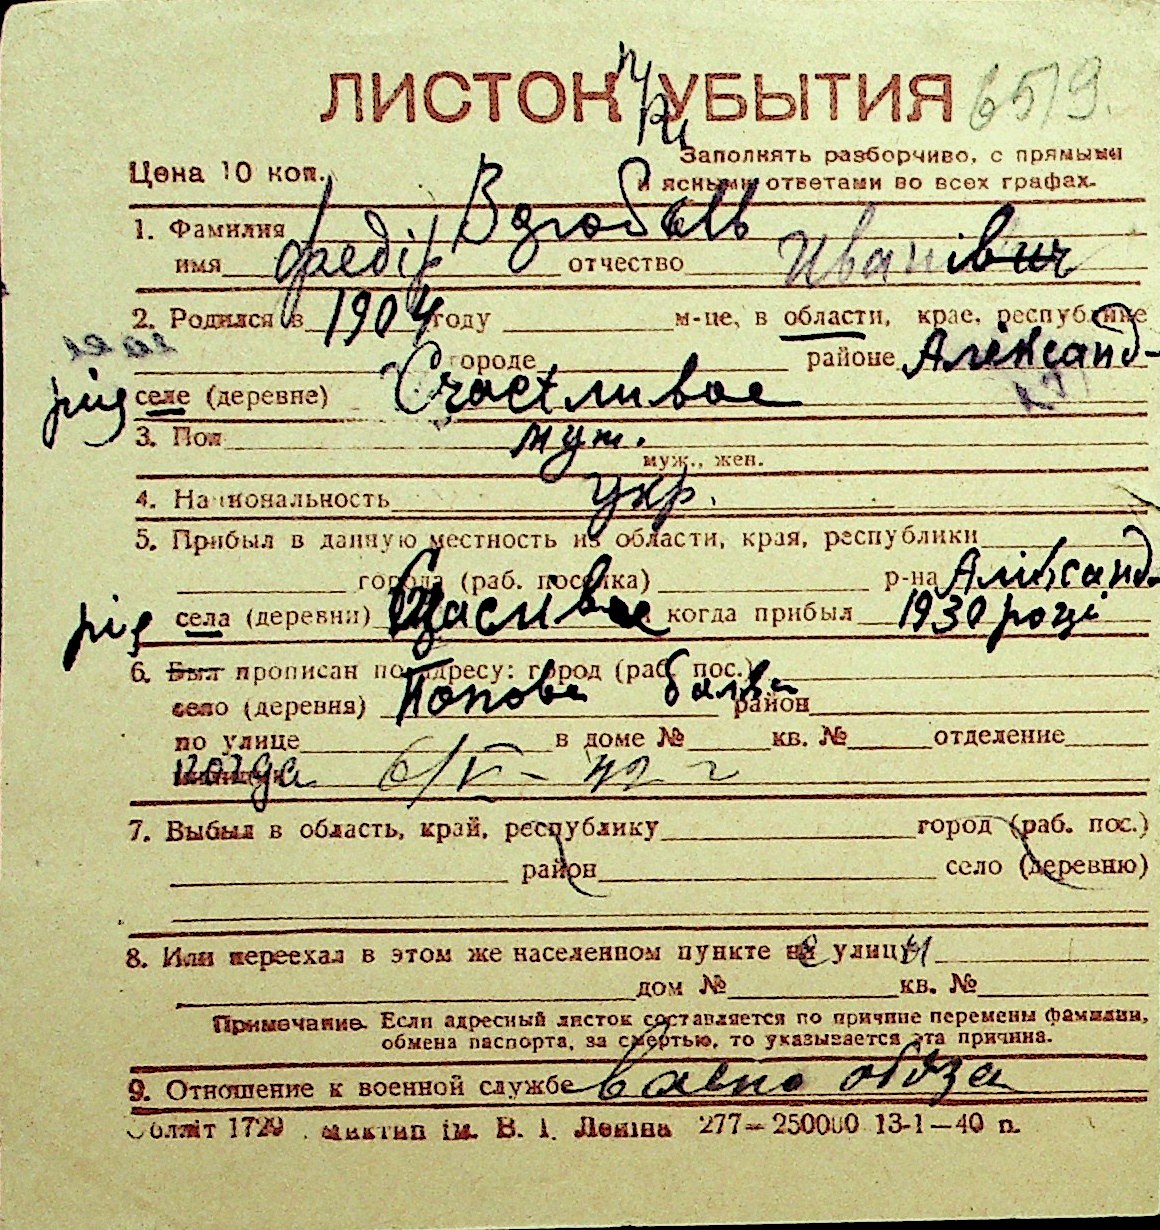 ЛИСТОК УБЫТИЯ 6519.
Цена 10 коп.
Заполнять разборчиво, с прямыми
и ясными ответами во всех графах.
1. Фамилия
имя Федір отчество Іванівич
2. Родился в 1904 году м-це, в области, крае, республике
городе районе Александ-
рія селе (деревне) Счастливое
3. Пол муж.
муж., жен.
4. Национальность укр.
5. Прибыл в данную местность из области, края, республики
города (раб. поселка) р-на Александ-
рія села (деревни) Щасливое когда прибыл 1930 році
6. Был прописан по адресу: город (раб. пос.)
село (деревня) Попова балка район
по улице в доме № кв. № отделение
когда 6/V - 42 г
7. Выбыл в область, край, республику город (раб. пос.)
район село (деревню)
8. Или переехал в этом же населенном пункте улицы
дом № кв. №
Примечание. Если адресный листок составляется по причине перемены фамилии,
обмена паспорта, за смертью, то указывается эта причина.
9. Отношение к военной службе
Облліт 1729 ім. В. І. Леніна 277—250000 13-1—40 п.